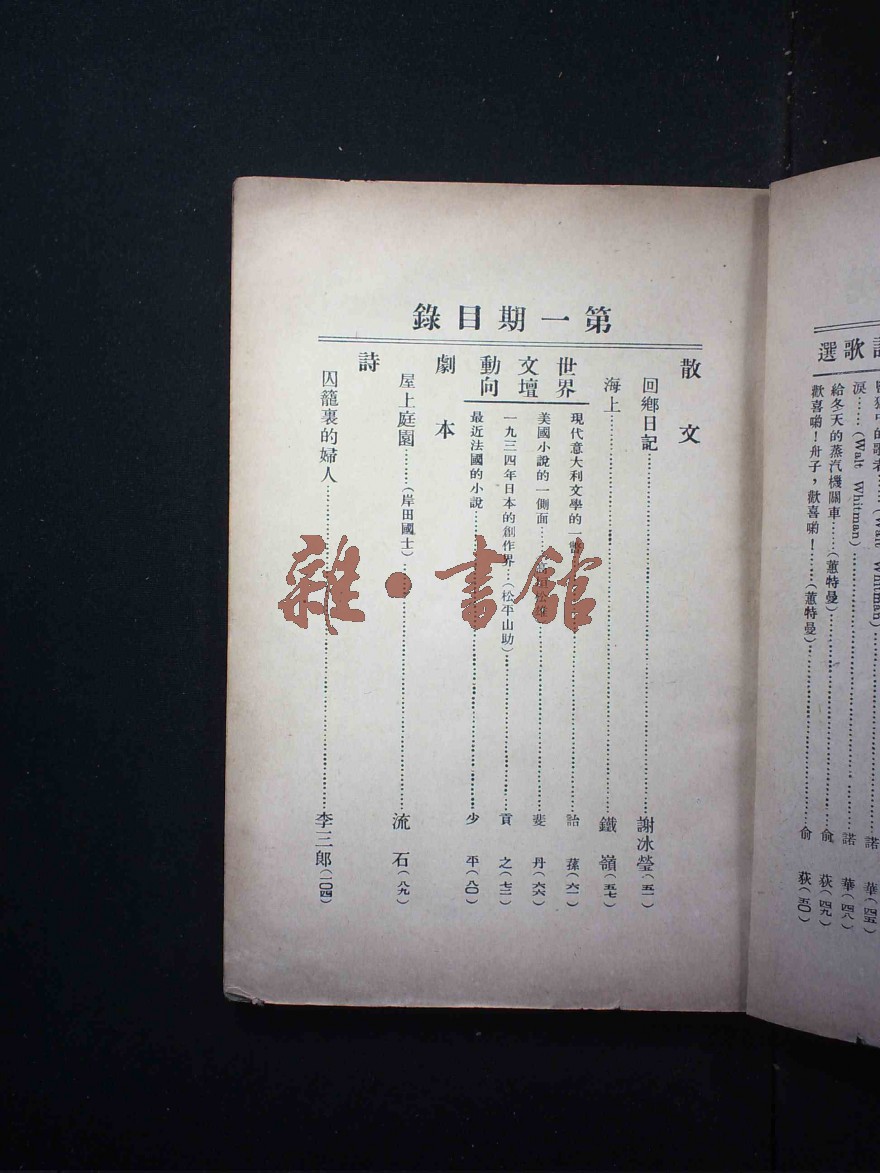 歌選
淚……（Walt Whitman）……諾　華（四八）
給冬天的蒸汽機關車……（蕙特曼）……俞　荻（四九）
歡喜喲！舟子，歡喜喲！……（蕙特曼）……俞　荻（五〇）
第一期目錄
散　文
回鄉日記……謝冰瑩（五一）
海上……鐵嶺（五七）
世界文壇動向
現代意大利文學的一……詒　蓀（六一）
美國小說的一側面……斐　丹（六六）
一九三四年日本的創作界…（松平山助）……貢　之（七二）
最近法國的小說……少　平（八〇）
劇　本
屋上庭園……（岸田國士）……流　石（八九）
詩
囚籠裏的婦人……李三郎（一〇四）
雜·書館